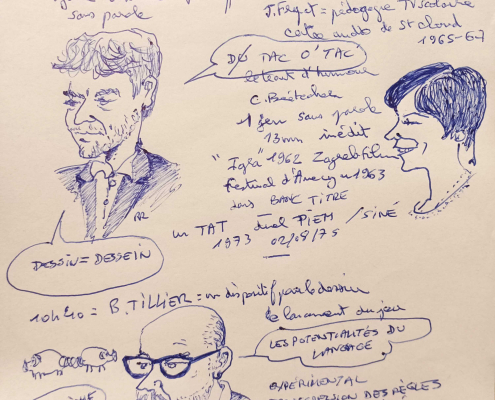 sans parole
J. Frapat = pédagogie TV scolaire
de St Cloud
1965-67
DU TAC O'TAC
le trait d'humour
C. Bretécher
1 jeu sans parole
13mn inédit
"Igra" 1962 Zagreb Film
Festival d'Annecy 1963
sans BANC TITRE
un TAT duel PIEM / SINÉ
1973 02/08/75
DESSIN = DESSEIN
10h40 = B. TILLIER = un dispositif par le dessin
le lancement du jeu
LES POTENTIALITÉS DU
LANGAGE
EXPÉRIMENTAL
DES RÈGLES